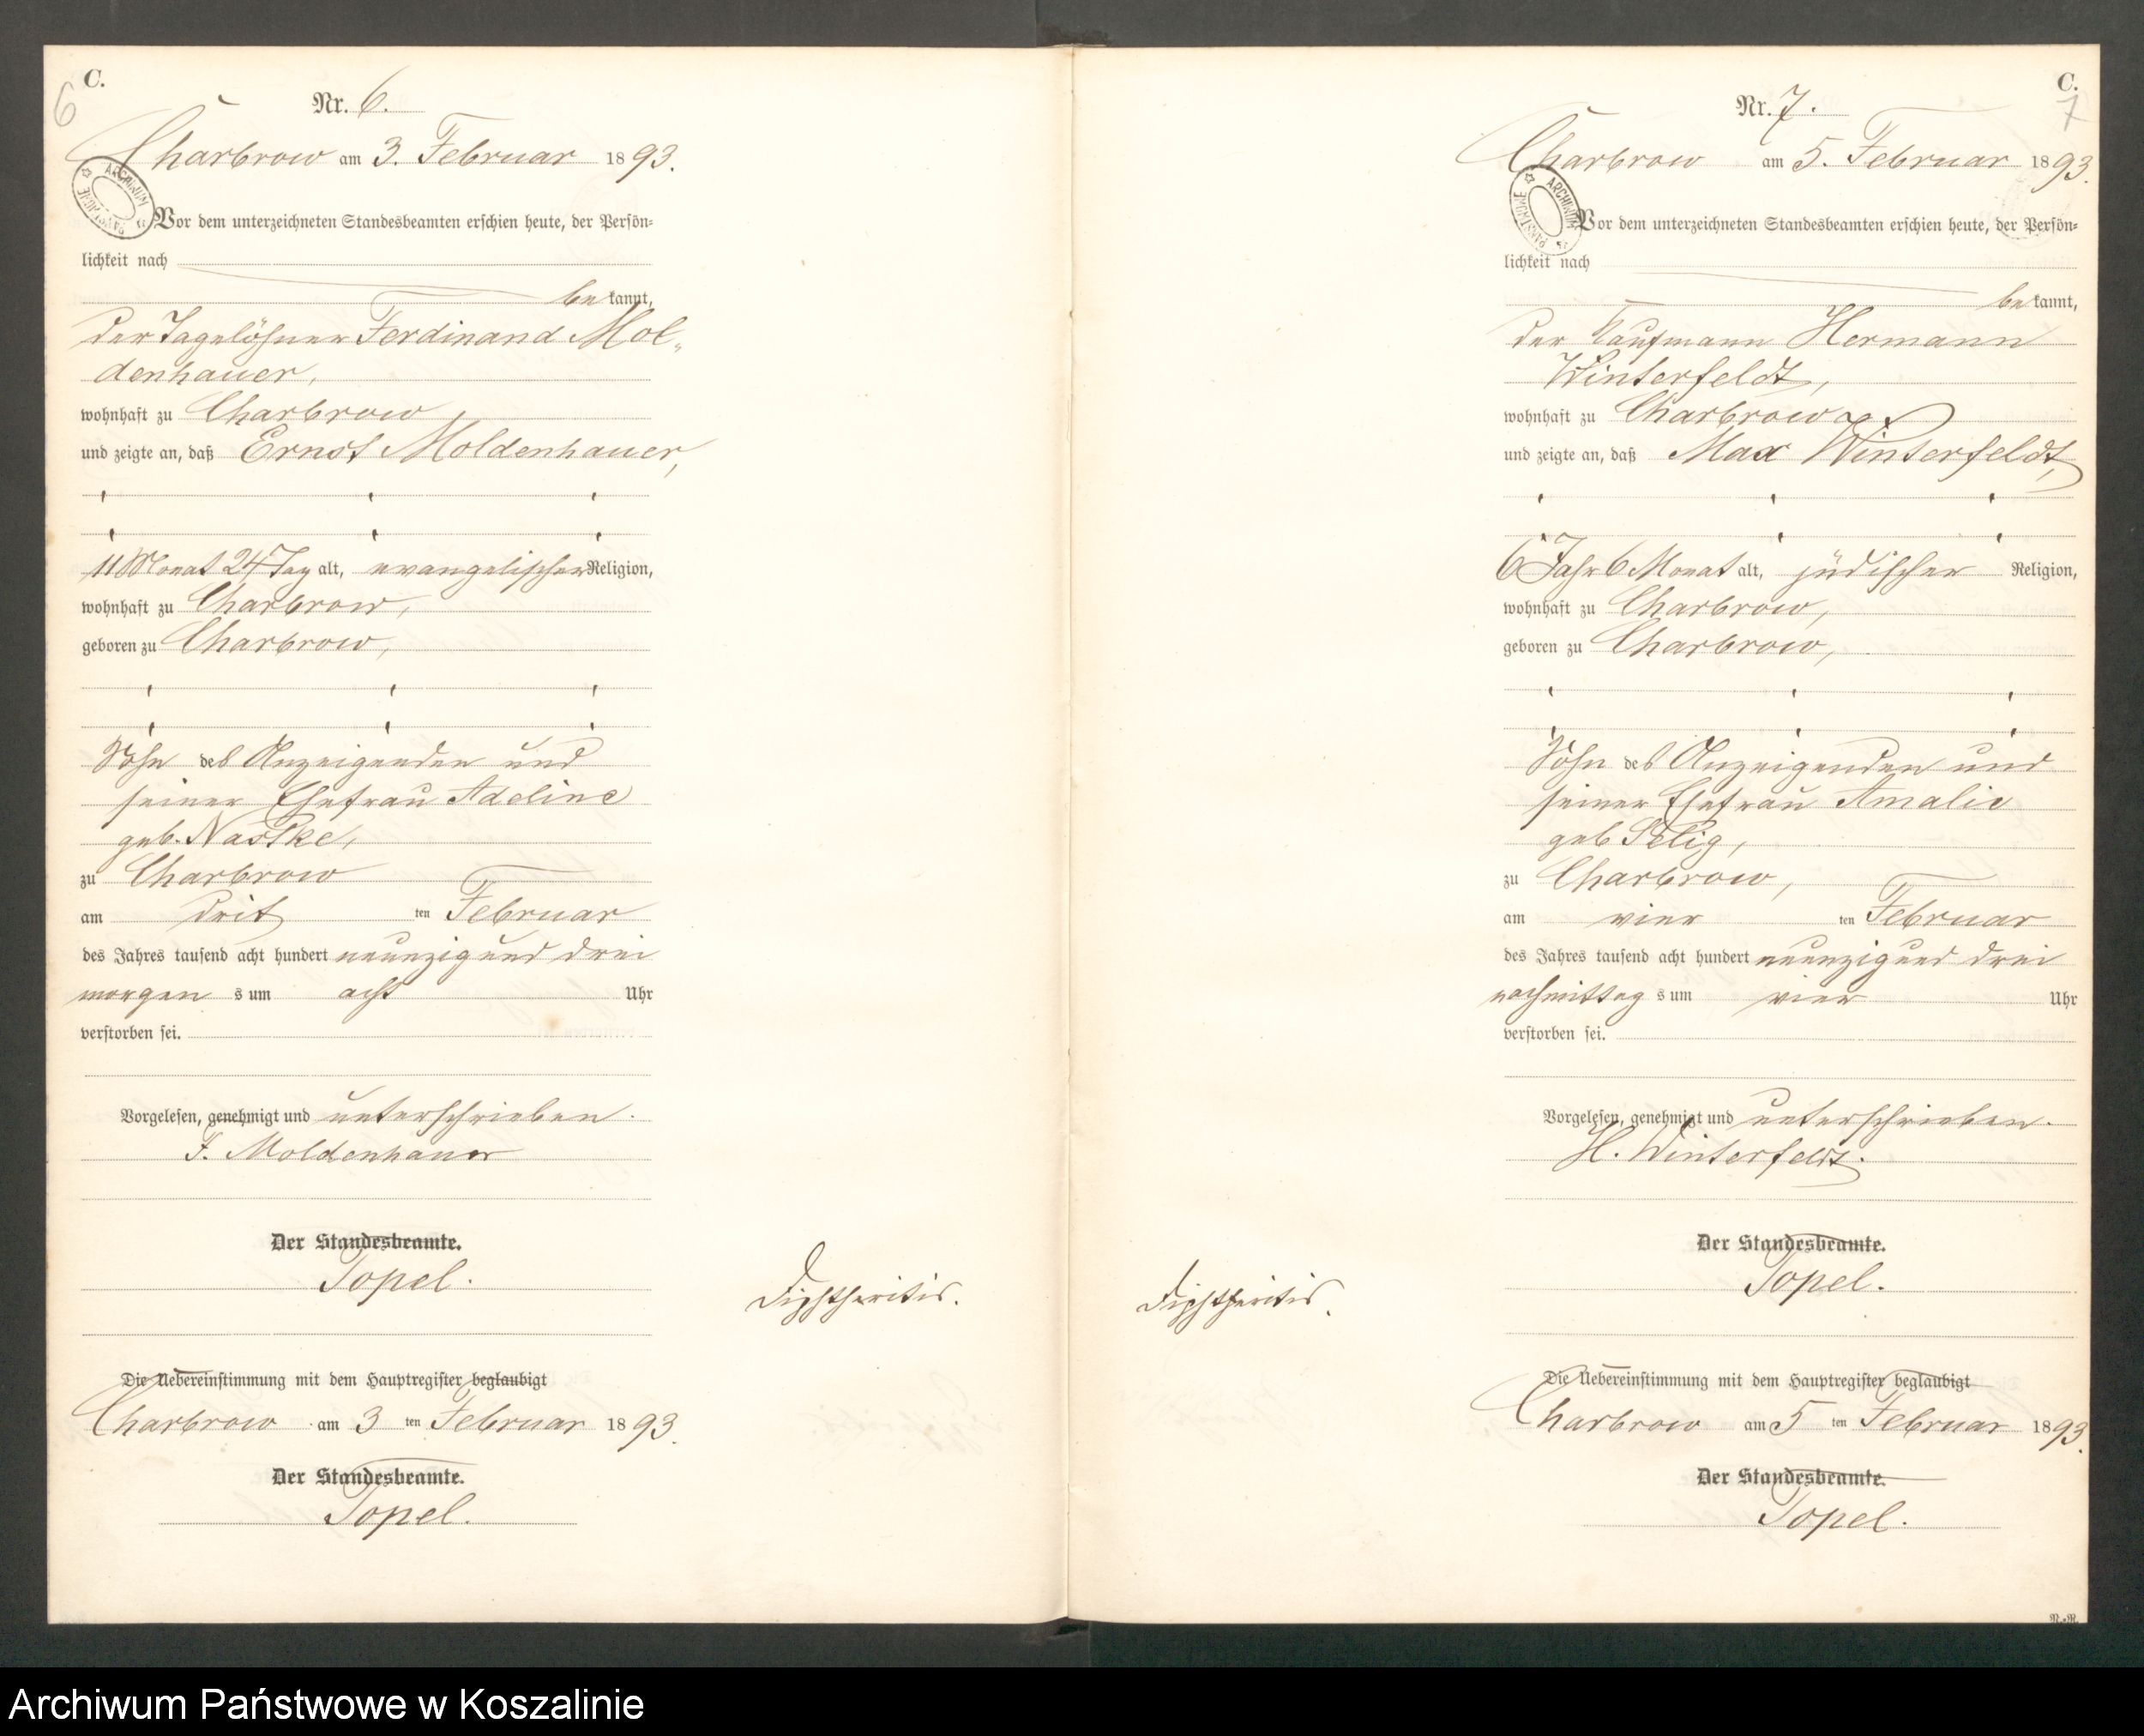 C.
6
Nr. 6.
Charbrow am 3. Februar 1893.
Vor dem unterzeichneten Standesbeamten erschien heute, der Persön-
lichkeit nach
bekannt,
der Tagelöhner Ferdinand Mol-
denhauer,
wohnhaft zu Charbrow
und zeigte an, daß Ernst Moldenhauer,
11 Monat 24 Tag alt, evangelischer Religion,
wohnhaft zu Charbrow,
geboren zu Charbrow,
Sohn des Anzeigenden und
seiner Ehefrau Adeline
geb. Naske,
zu Charbrow
am drit ten Februar
des Jahres tausend acht hundert neunzig und drei
morgens um acht Uhr
verstorben sei.
Vorgelesen, genehmigt und unterschrieben.
F. Moldenhauer
Der Standesbeamte.
Topel.
Diphtheritis.
Die Uebereinstimmung mit dem Hauptregister beglaubigt
Charbrow am 3 ten Februar 1893.
Der Standesbeamte.
Topel.
C.
7
Nr. 7.
Charbrow am 5. Februar 1893.
Vor dem unterzeichneten Standesbeamten erschien heute, der Persön-
lichkeit nach
bekannt,
der Kaufmann Hermann
Winterfeldt,
wohnhaft zu Charbrow
und zeigte an, daß Max Winterfeldt,
6 Jahr 6 Monat alt, jüdischer Religion,
wohnhaft zu Charbrow,
geboren zu Charbrow,
Sohn des Anzeigenden und
seiner Ehefrau Amalie
geb Selig,
zu Charbrow,
am vier ten Februar
des Jahres tausend acht hundert neunzig und drei
nachmittags um vier Uhr
verstorben sei.
Vorgelesen, genehmigt und unterschrieben.
H. Winterfeldt.
Der Standesbeamte.
Topel.
Diphtheritis.
Die Uebereinstimmung mit dem Hauptregister beglaubigt
Charbrow am 5 ten Februar 1893.
Der Standesbeamte.
Topel.
Archiwum Państwowe w Koszalinie